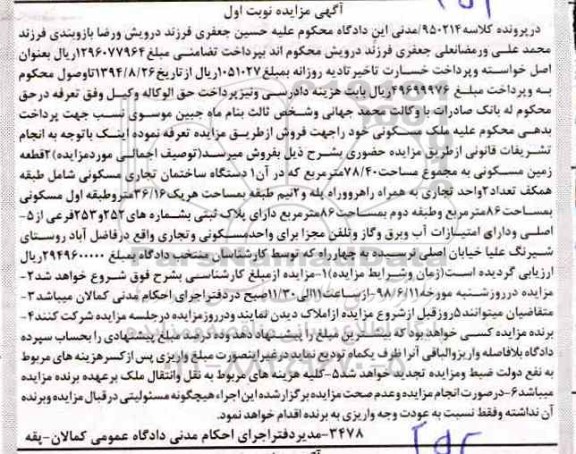 آگهی مزایده نوبت اول
درپرونده کلاسه۹۵۰۲۱۴/مدنی این دادگاه محکوم علیه حسین جعفری فرزند درویش ورضا بازوبندی فرزند
محمد علی ورمضانعلی جعفری فرزند درویش محکوم اند بپرداخت تضامنی مبلغ۱۲۹۶۰۷۷۹۶۴ریال بعنوان
اصل خواسته وپرداخت خسارت تاخیرتادیه روزانه بمبلغ۱۰۵۱۰۲۷ریال ازتاریخ۱۳۹۴/۸/۲۶تاوصول محکوم
به وپرداخت مبلغ ۴۹۶۹۹۹۷۶ریال بابت هزینه دادرسی ونیزپرداخت حق الوکاله وکیل وفق تعرفه درحق
محکوم له بانک صادرات با وکالت محمد جهانی وشخص ثالث بنام ماه جبین موسوی نسب جهت پرداخت
بدهی محکوم علیه ملک مسکونی خود راجهت فروش ازطریق مزایده تعرفه نموده اینک باتوجه به انجام
تشریفات قانونی ازطریق مزایده حضوری بشرح ذیل بفروش میرسد(توصیف اجمالی موردمزایده)۲قطعه
زمین مسکونی به مجموع مساحت۷۸/۴۰مترمربع که در آن۱ دستگاه ساختمان تجاری مسکونی شامل طبقه
همکف تعداد۲واحد تجاری به همراه راهروورراه پله و۲نیم طبقه بمساحت هریک۳۶/۱۶متروطبقه اول مسکونی
بمساحت۸۶مترمربع وطبقه دوم بمساحت۸۶مترمربع دارای پلاک ثبتی بشماره های۲۵۲و۲۵۳فرعی از۵-
اصلی ودارای امتیازات آب وبرق وگاز وتلفن مجزا برای واحدمسکونی وتجاری واقع درفاضل آباد روستای
شیرنگ علیا خیابان اصلی نرسیده به چهارراه که توسط کارشناسان منتخب دادگاه بمبلغ ۲۹۴۹۶۰۰۰۰۰ریال
ارزیابی گردیده است(زمان وشرایط مزایده)۱-مزایده ازمبلغ کارشناسی بشرح فوق شروع خواهد شد۲-
مزایده درروزشنبه مورخه۹۸/۶/۱۱ازساعت۱۱الی۱۱/۳۰صبح دردفتراجرای احکام مدنی کمالان میباشد۳-
متقاضیان میتوانند۵روزقبل ازشروع مزایده ازاملاک دیدن نمایند ودرروزمزایده درجلسه مزایده شرکت کنند۴-
برنده مزایده کسی خواهد بود که بیشترین مبلغ را پیشنهاد دهد وده درصد مبلغ پیشنهادی را بحساب سپرده
دادگاه بلافاصله واریزوالباقی آنرا ظرف یکماه تودیع نماید درغیراینصورت مبلغ واریزی پس ازکسرهزینه های مربوط
به نفع دولت ضبط ومزایده تجدید خواهد شد۵-کلیه هزینه های مربوط به نقل وانتقال ملک برعهده برنده مزایده
میباشد۶-درصورت انجام مزایده وعدم صحت مزایده برگزارشده این اجراء هیچگونه مسئولیتی درقبال مزایده وبرنده
آن نداشته وفقط نسبت به عودت وجه واریزی به برنده اقدام خواهد نمود.
۳۴۷۸-مدیردفتراجرای احکام مدنی دادگاه عمومی کمالان-پقه